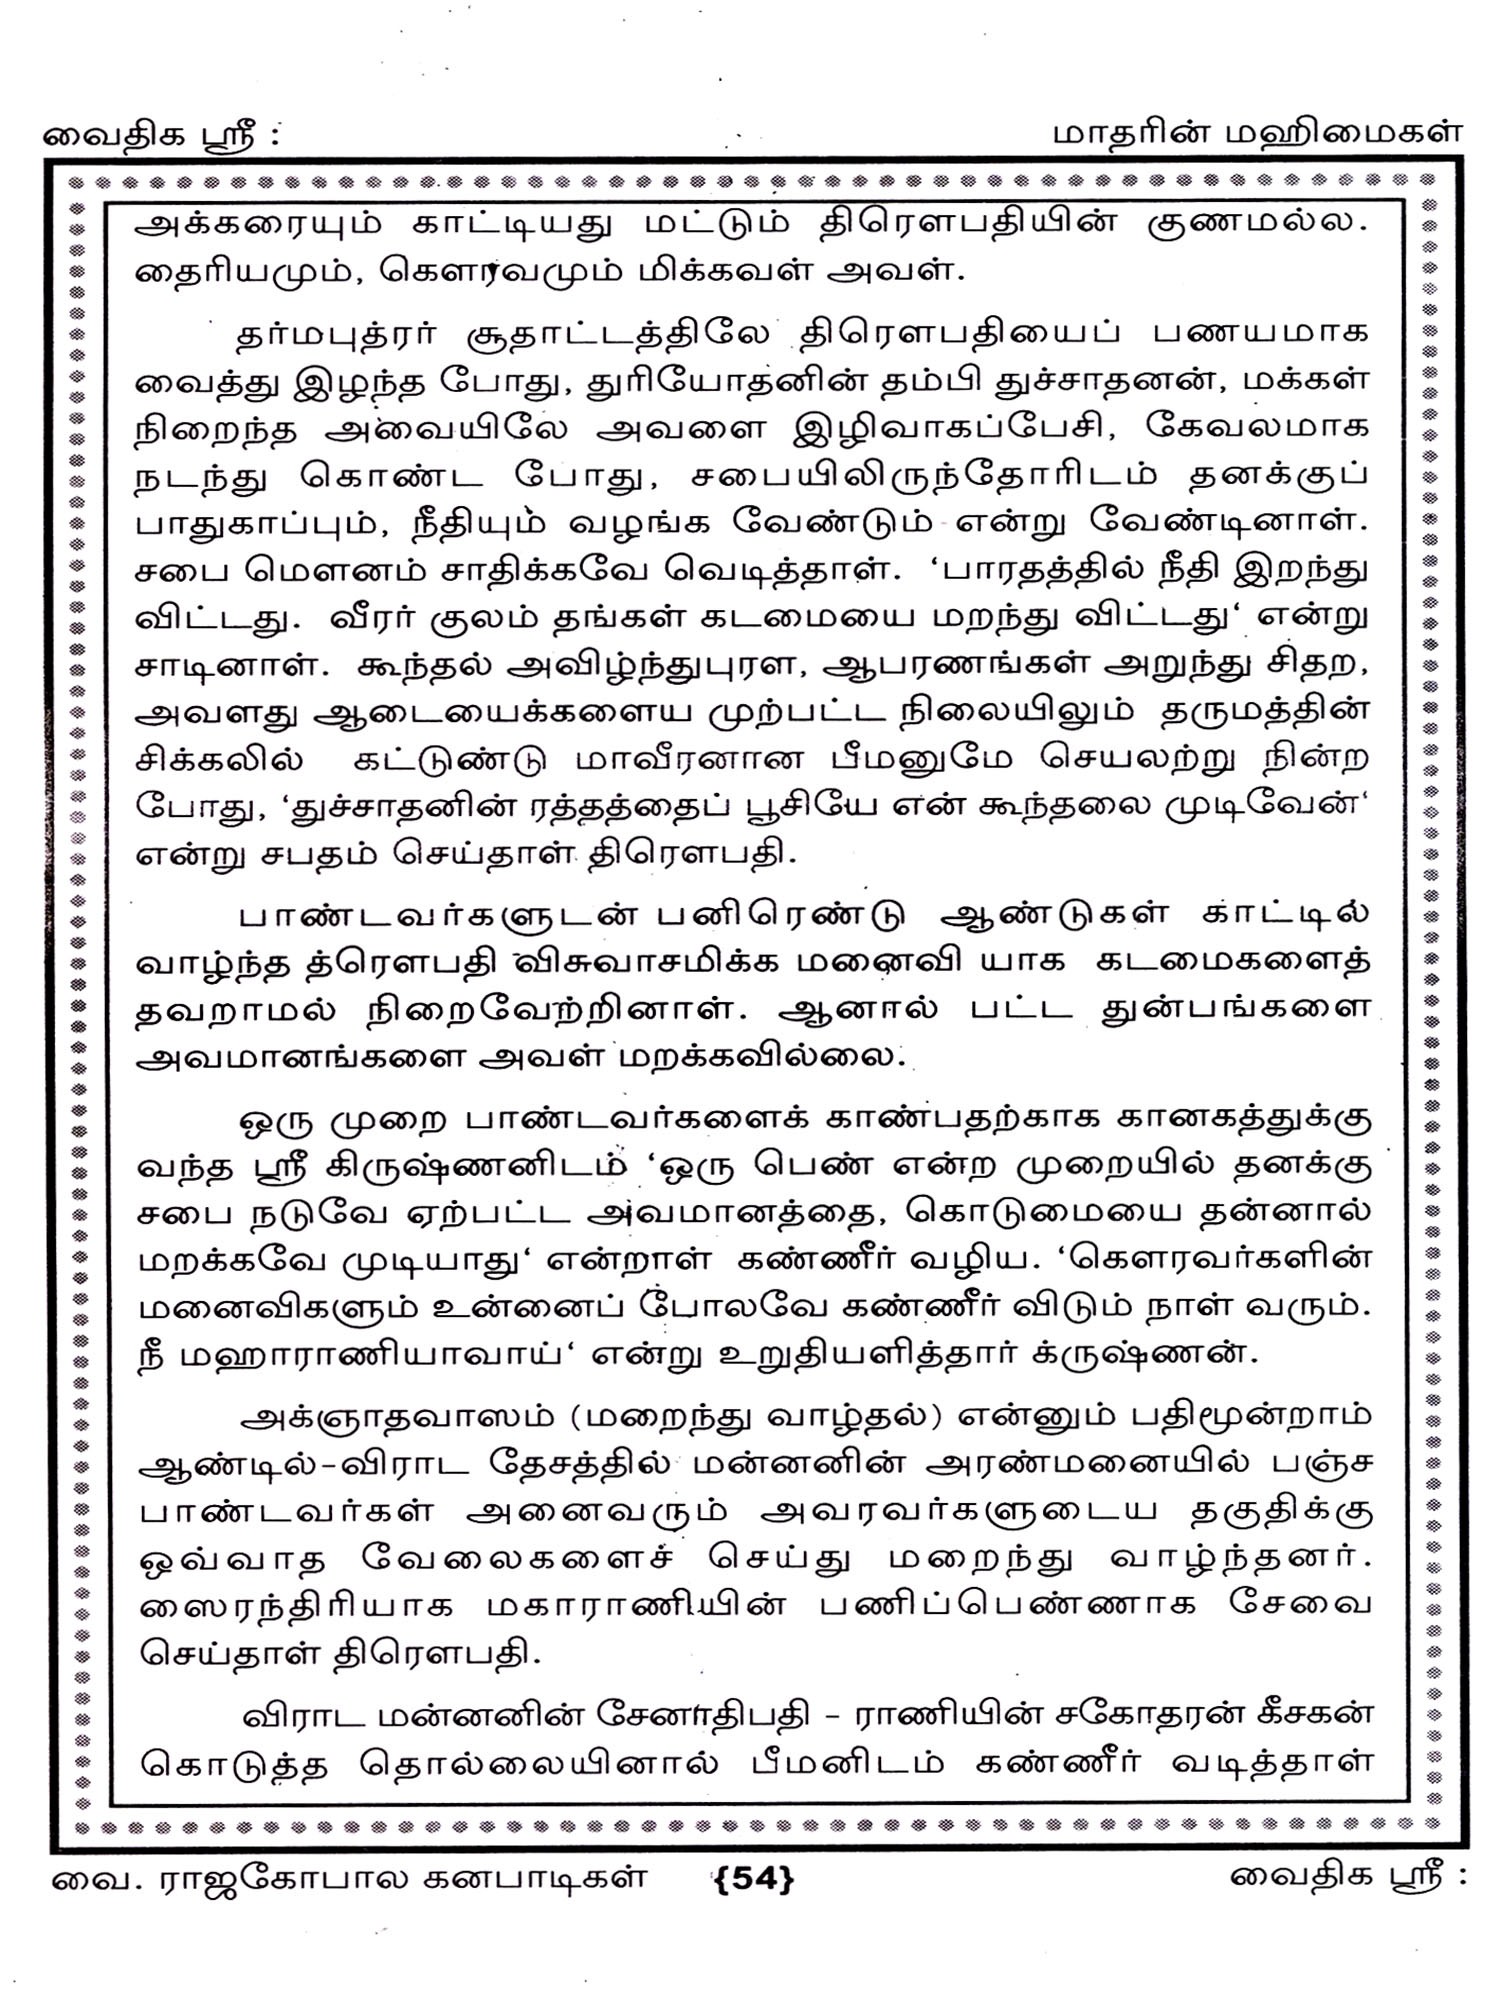 வைதிக ஸ்ரீ :
மாதரின் மஹிமைகள்
அக்கரையும் காட்டியது மட்டும் திரௌபதியின் குணமல்ல.
தைரியமும், கௌரவமும் மிக்கவள் அவள்.
தர்மபுத்ரர் சூதாட்டத்திலே திரௌபதியைப் பணயமாக
வைத்து இழந்த போது, துரியோதனின் தம்பி துச்சாதனன், மக்கள்
நிறைந்த அவையிலே அவளை இழிவாகப்பேசி, கேவலமாக
நடந்து கொண்ட போது, சபையிலிருந்தோரிடம் தனக்குப்
பாதுகாப்பும், நீதியும் வழங்க வேண்டும் என்று வேண்டினாள்.
சபை மௌனம் சாதிக்கவே வெடித்தாள். ‘பாரதத்தில் நீதி இறந்து
விட்டது. வீரர் குலம் தங்கள் கடமையை மறந்து விட்டது‘ என்று
சாடினாள். கூந்தல் அவிழ்ந்துபுரள, ஆபரணங்கள் அறுந்து சிதற,
அவளது ஆடையைக்களைய முற்பட்ட நிலையிலும் தருமத்தின்
சிக்கலில் கட்டுண்டு மாவீரனான பீமனுமே செயலற்று நின்ற
போது, ‘துச்சாதனின் ரத்தத்தைப் பூசியே என் கூந்தலை முடிவேன்‘
என்று சபதம் செய்தாள் திரௌபதி.
பாண்டவர்களுடன் பனிரெண்டு ஆண்டுகள் காட்டில்
வாழ்ந்த த்ரௌபதி விசுவாசமிக்க மனைவி யாக கடமைகளைத்
தவறாமல் நிறைவேற்றினாள். ஆனால் பட்ட துன்பங்களை
அவமானங்களை அவள் மறக்கவில்லை.
ஒரு முறை பாண்டவர்களைக் காண்பதற்காக கானகத்துக்கு
வந்த ஸ்ரீ கிருஷ்ணனிடம் ‘ஒரு பெண் என்ற முறையில் தனக்கு
சபை நடுவே ஏற்பட்ட அவமானத்தை, கொடுமையை தன்னால்
மறக்கவே முடியாது‘ என்றாள் கண்ணீர் வழிய. ‘கௌரவர்களின்
மனைவிகளும் உன்னைப் போலவே கண்ணீர் விடும் நாள் வரும்.
நீ மஹாராணியாவாய்‘ என்று உறுதியளித்தார் க்ருஷ்ணன்.
அக்ஞாதவாஸம் (மறைந்து வாழ்தல்) என்னும் பதிமூன்றாம்
ஆண்டில்–விராட தேசத்தில் மன்னனின் அரண்மனையில் பஞ்ச
பாண்டவர்கள் அனைவரும் அவரவர்களுடைய தகுதிக்கு
ஒவ்வாத வேலைகளைச் செய்து மறைந்து வாழ்ந்தனர்.
ஸைரந்திரியாக மகாராணியின் பணிப்பெண்ணாக சேவை
செய்தாள் திரௌபதி.
விராட மன்னனின் சேனாதிபதி – ராணியின் சகோதரன் கீசகன்
கொடுத்த தொல்லையினால் பீமனிடம் கண்ணீர் வடித்தாள்
வை. ராஜகோபால கனபாடிகள்
{54}
வைதிக ஸ்ரீ :